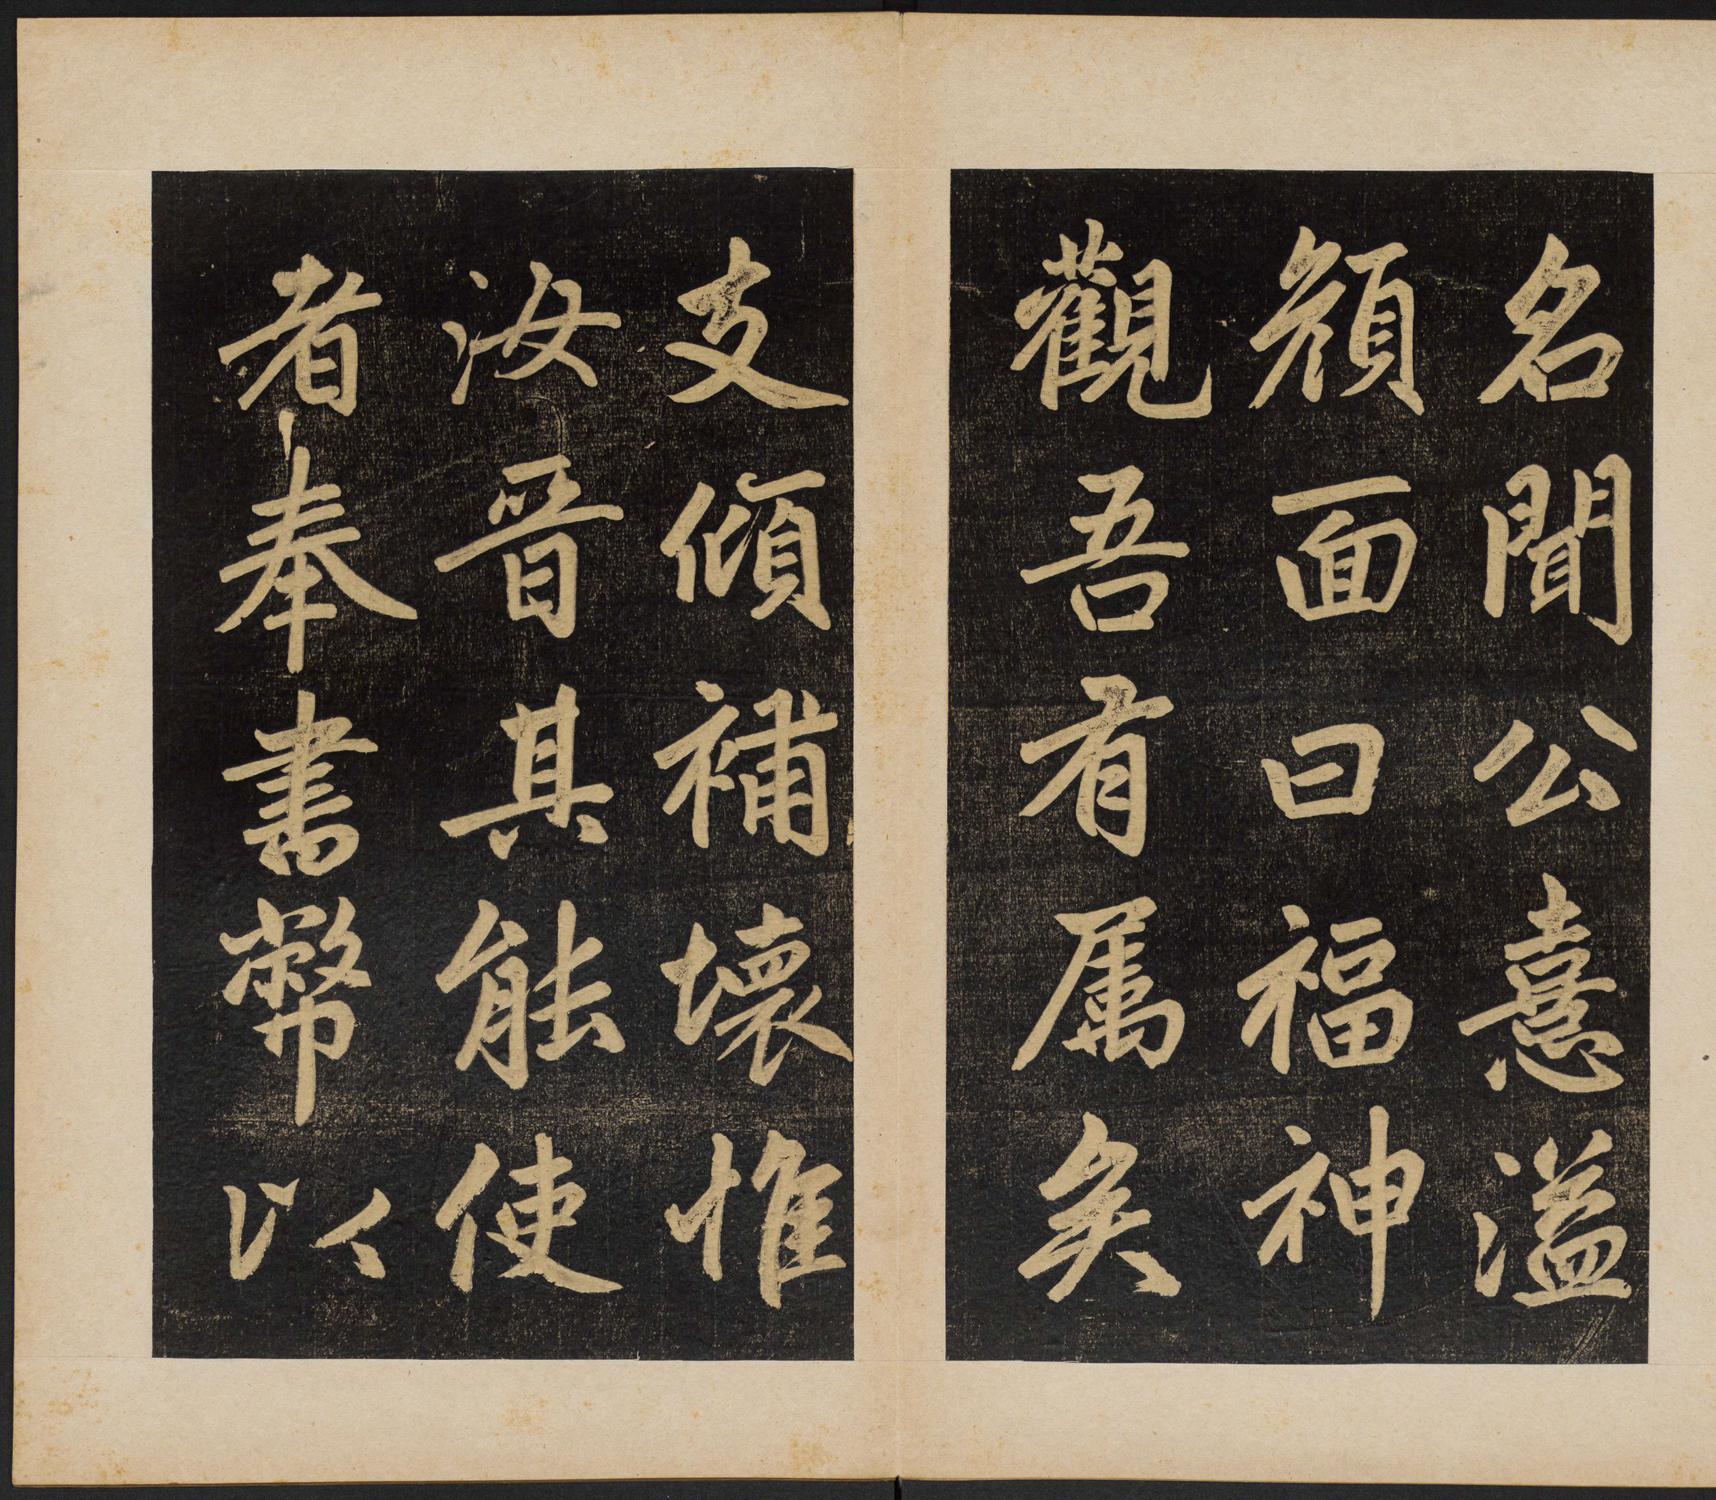 名聞公憙溢
顏面曰福神
觀吾有属矣
支傾補壞惟
汝晉其能使
者奉書幣以